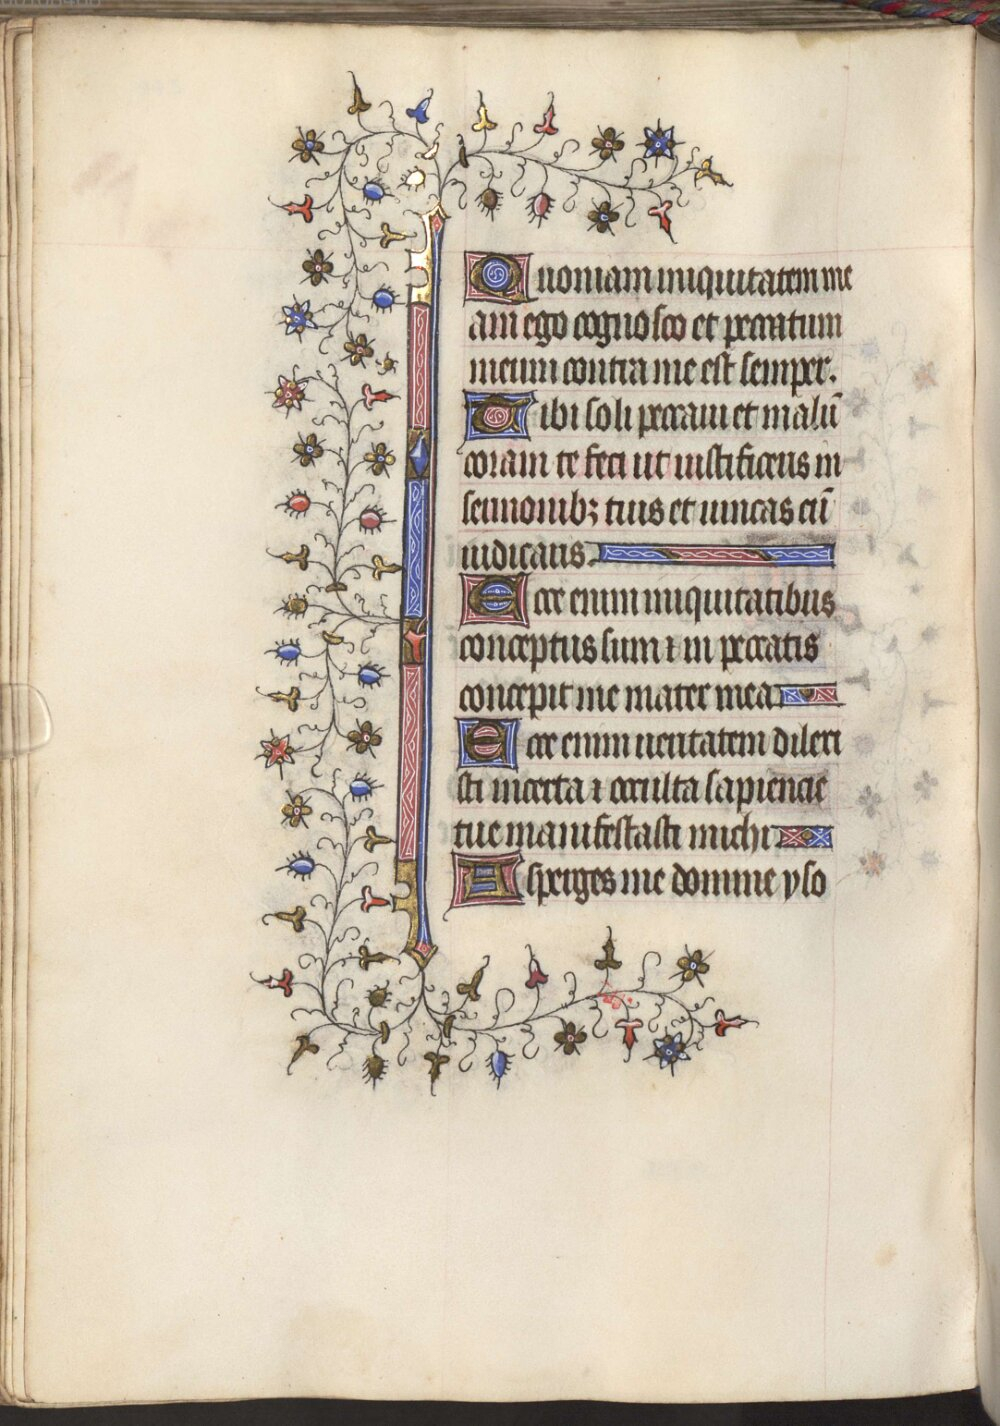 Quoniam iniquitatem me
am ego cognosco et peccatum
meum contra me est semper.
Tibi soli peccaui et malū
coram te feci ut iustificeris in
sermonibꝫ tuis et uincas cū
iudicaris.
Ecce enim iniquitatibus
conceptus sum ⁊ in peccatis
concepit me mater mea
Ecce enim ueritatem dilexi
sti incerta ⁊ occulta sapiencie
tue manifestasti michi
Asperges me domine yso